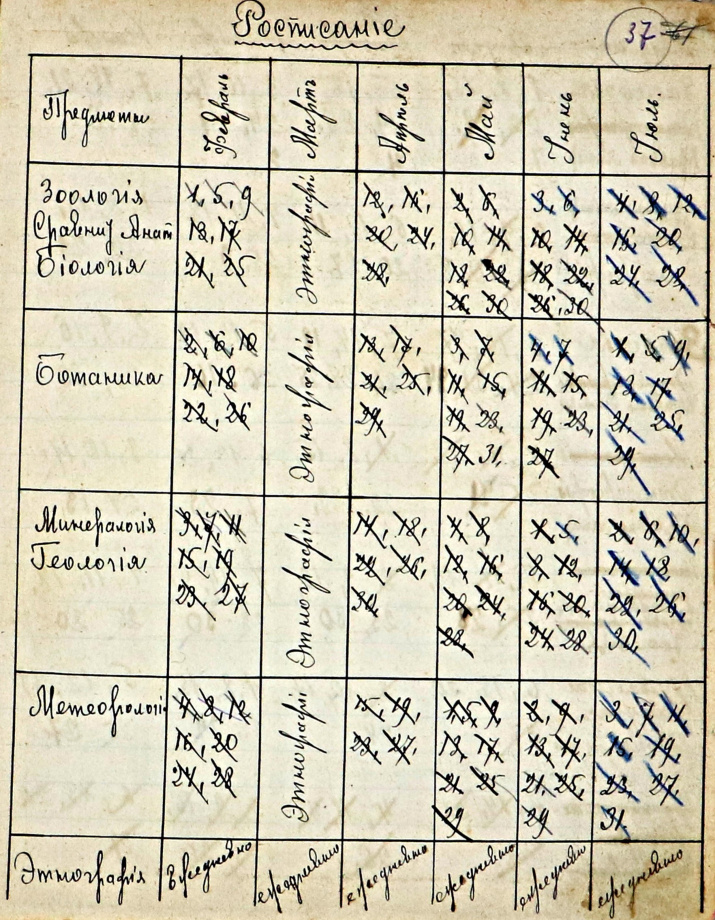 Росписаніе
37
Предметы Февраль Мартъ Апрель Май Іюнь Іюль.
Зоологія 1, 5, 9 Этнографія 12, 16, 2, 6, 3, 6, 4, 8, 12,
Сравнит Анат 13, 17 20, 24, 10, 14 10, 14, 16, 20,
Біологія 21, 25 28, 18, 22, 18, 22, 24, 28,
26, 30 26, 30
Ботаника 2, 6, 10 Этнографія 13, 17, 3, 7, 4, 7, 1, 5, 9,
14, 18 21, 25, 11, 15, 11, 15, 13, 17,
22, 26 29, 19, 23, 19, 23, 21, 25,
27, 31, 27 29,
Минералогія 3, 7, 11 Этнографія 14, 18, 4, 8, 1, 5, 2, 6, 10,
Геологія 15, 19 22, 26, 12, 16, 8, 12, 14, 18,
23, 27 30, 20, 24, 16, 20, 22, 26,
28, 24, 28 30,
Метеорологія 4, 8, 12 Этнографія 15, 19, 1, 5, 9, 2, 9, 3, 7, 11,
16, 20 23, 27, 13, 17, 13, 17, 15, 19,
24, 28 21, 25 21, 25, 23, 27,
29 29 31,
Этнографія Ежедневно ежедневно ежедневно ежедневно ежедневно ежедневно